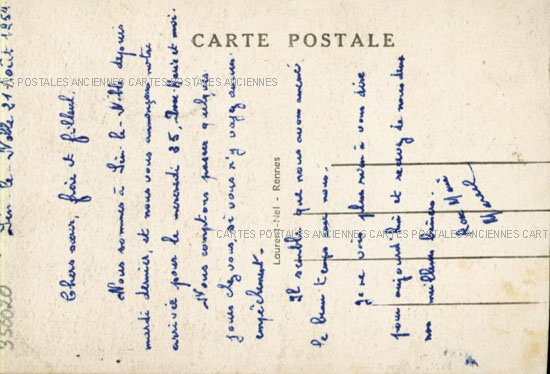 CARTE POSTALE
Lin-le-Nolle 21 Août 1954
Chers sœur, frère et filleul.
Nous sommes à Lin-le-Nolle depuis
mardi dernier, et nous vous annonçons notre
arrivée pour le mercredi 25, et moi.
Nous comptons passer quelques
jours chez vous, si vous n'y voyez aucun
empêchement.
Il semble que nous avons amené
le beau temps avec nous.
Je ne vois plus rien à vous dire
pour aujourd'hui et recevez de nous deux
nos meilleurs baisers.
Laurent-Nel - Rennes
350020
CARTES POSTALES ANCIENNES CARTES POSTALES ANCIENNES
CARTES POSTALES ANCIENNES CARTES POSTALES ANCIENNES CARTES